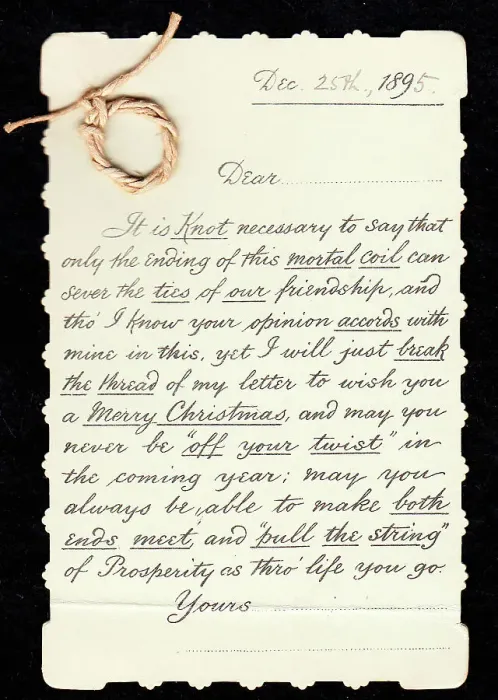 Dec. 25th., 1895.
Dear
It is Knot necessary to say that
only the ending of this mortal coil can
sever the ties of our friendship, and
tho' I know your opinion accords with
mine in this, yet I will just break
the thread of my letter to wish you
a Merry Christmas, and may you
never be "off your twist" in
the coming year; may you
always be able to make both
ends meet, and "pull the string"
of Prosperity as thro' life you go.
Yours